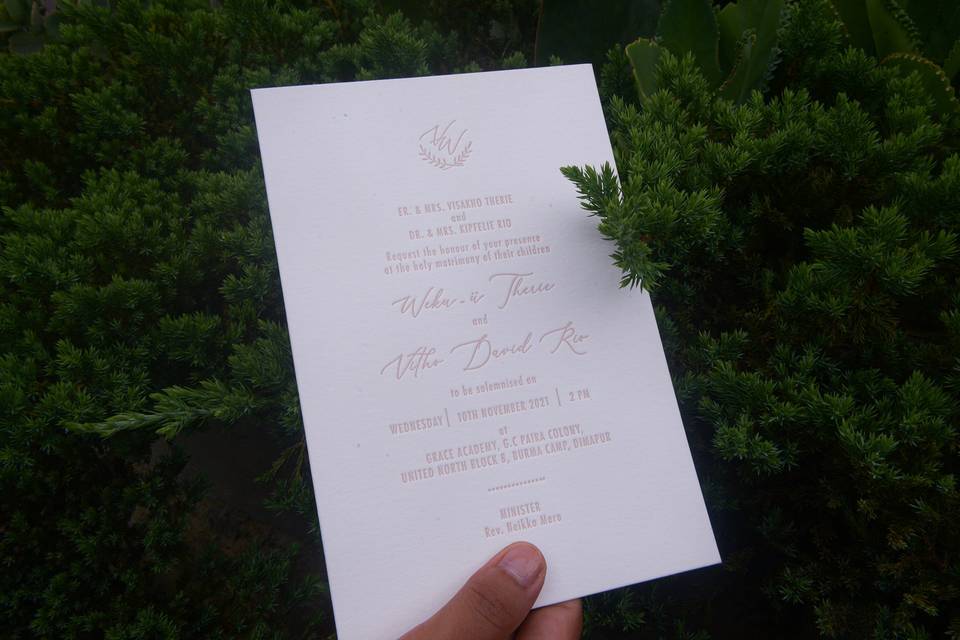 VW
ER. & MRS. VISAKHO THERIE
and
DR. & MRS. KIPFELIE RIO
Request the honour of your presence
at the holy matrimony of their children
Weku-ü Therie
and
Vitho David Rio
to be solemnised on
WEDNESDAY | 10TH NOVEMBER 2021 | 2 PM
at
GRACE ACADEMY, G.C PAIRA COLONY,
UNITED NORTH BLOCK B, BURMA CAMP, DIMAPUR
MINISTER
Rev. Neikho Mero